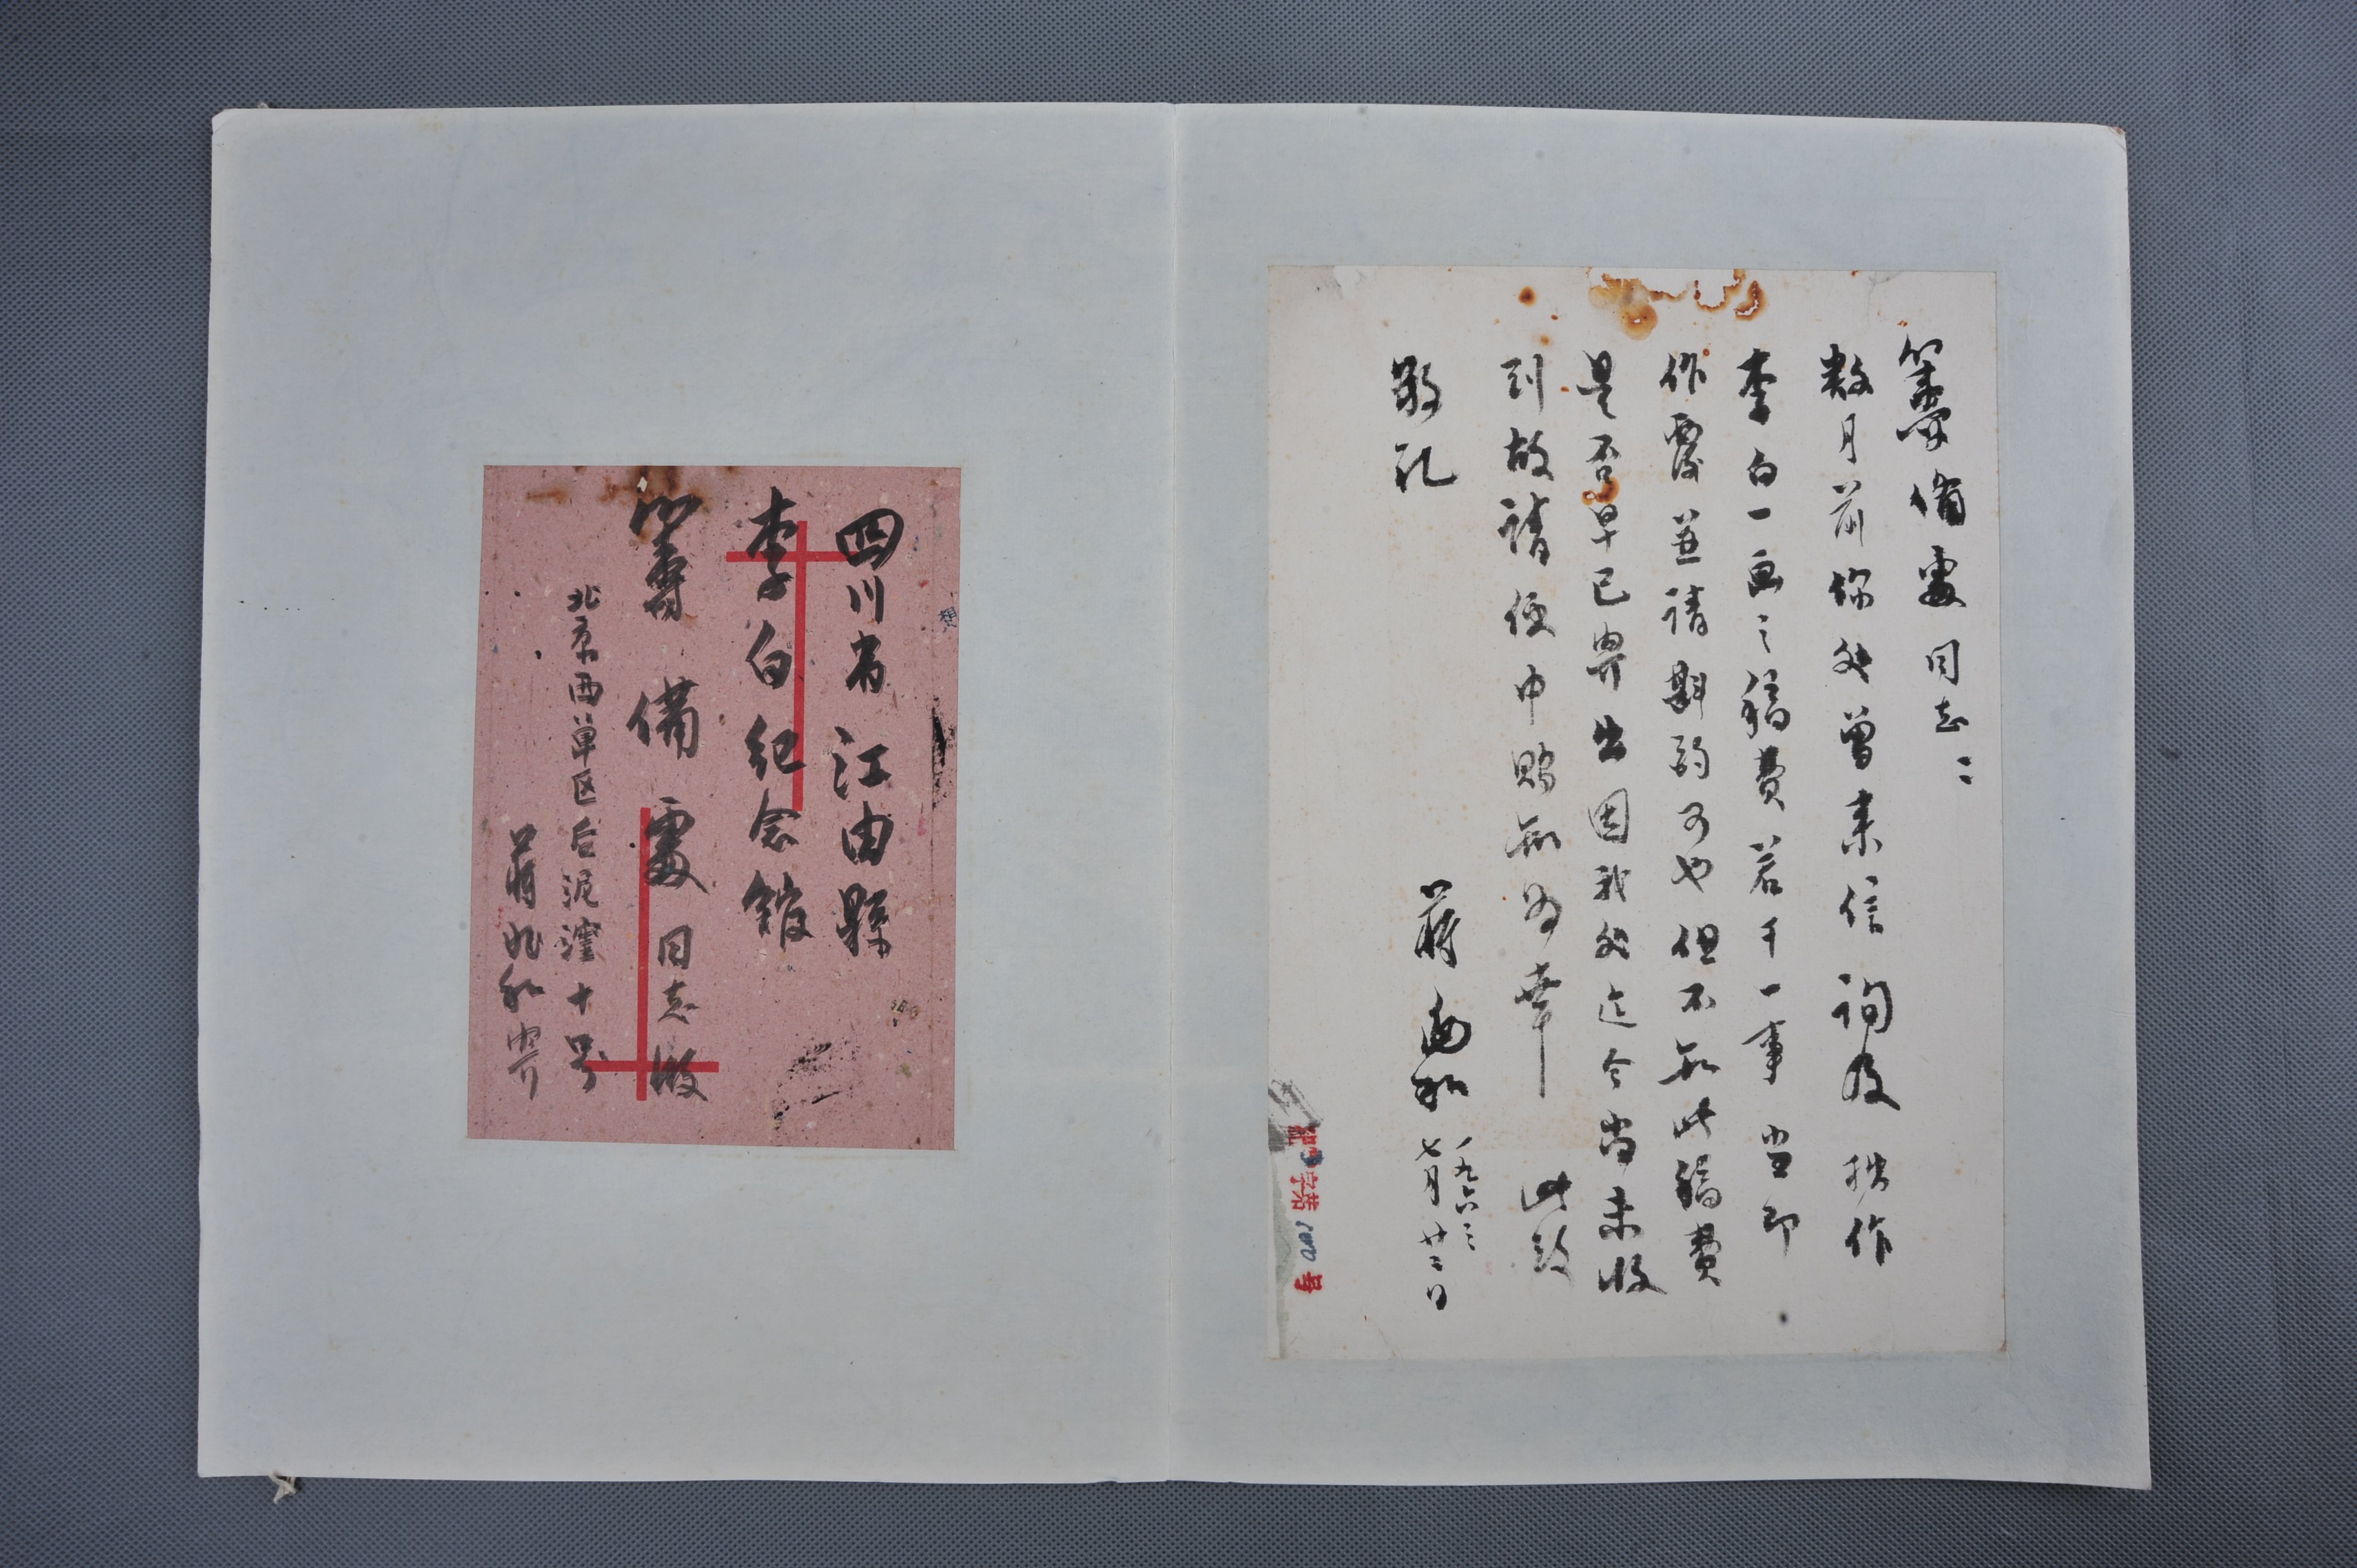 籌備處同志：
数月前你处曾来信询及拙作
李白一画之稿费若干一事当即
作覆並请斟酌可也但不知此稿费
是否早已寄出因我处迄今尚未收
到故请便中賜知为幸 此致
敬礼
蒋兆和 一九六三
七月廿二日
字第 号
四川省江由縣
李白紀念館
籌備處同志收
北京西单区后泥洼十号
蒋兆和寄